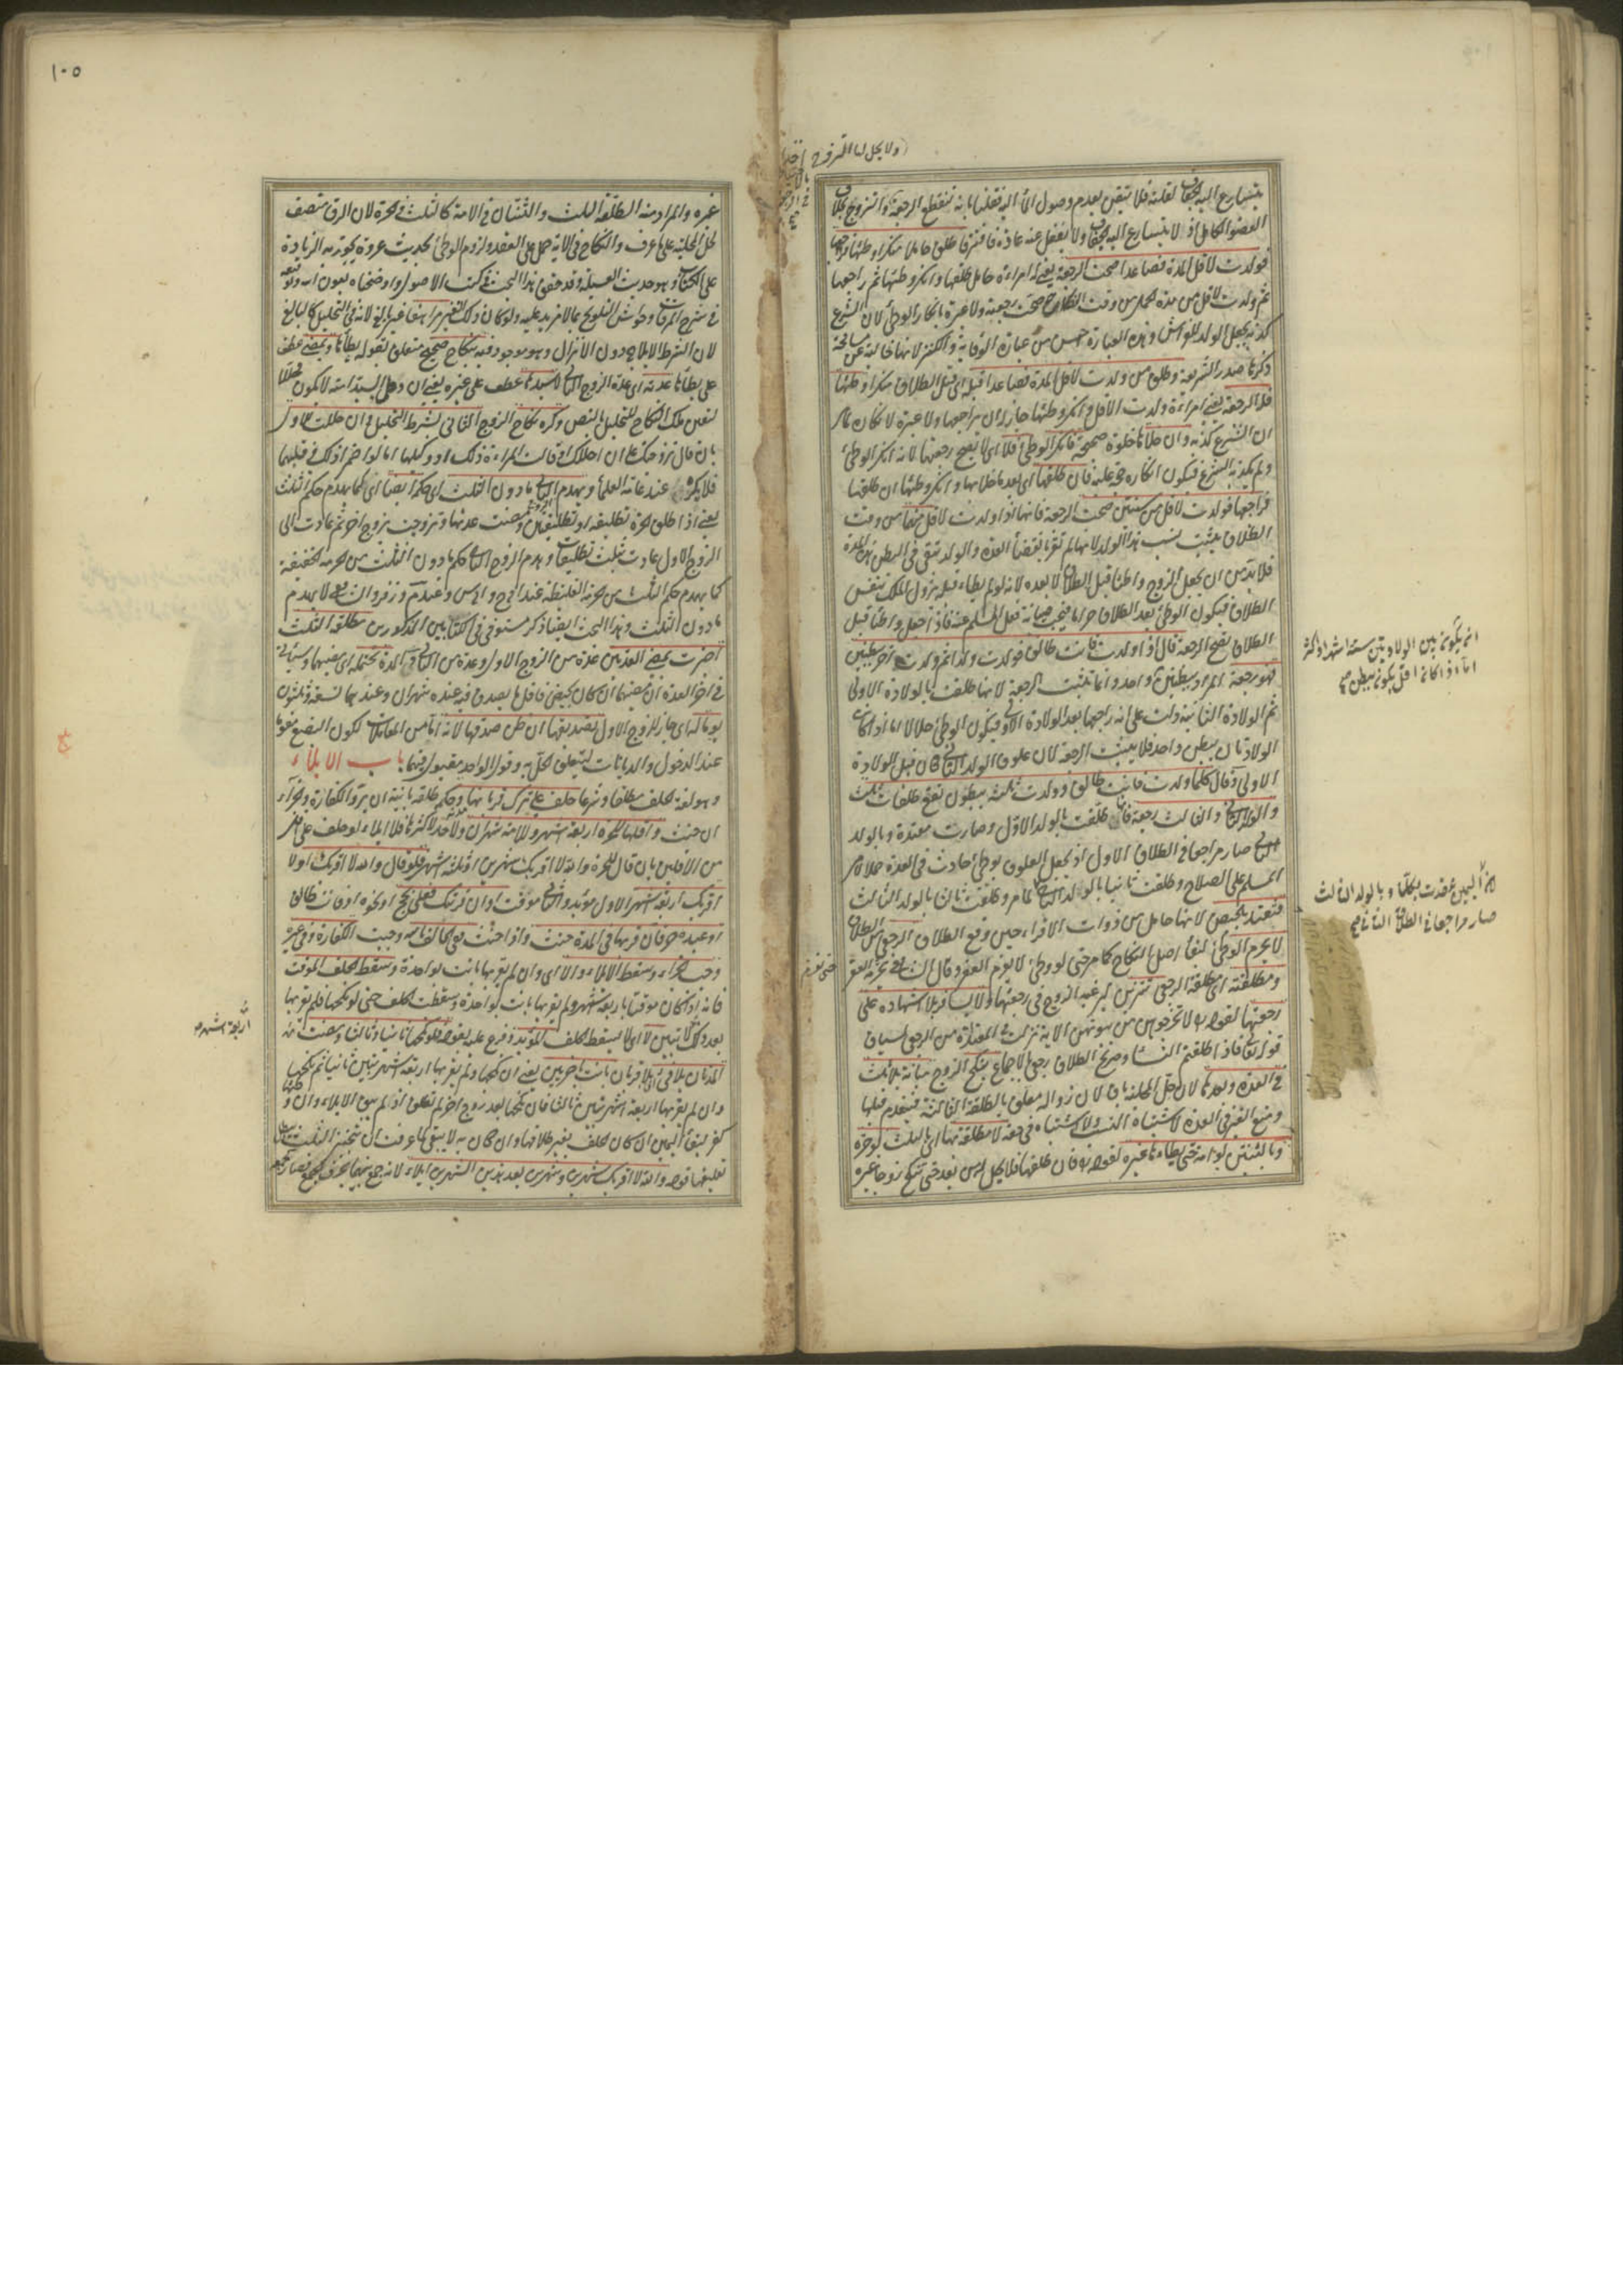 ولا يحل لها التزوج
يتسارع اليه الجفاف لقلته فلا يتيقن بعدم وصول الماء اليه فقلنا بانه تنقطع الرجعة والتزوج بخلاف
العضو الكامل اذ لا يتسارع اليه الجفاف ولا يغفل عنه عادة فافترقا طلق حاملا منكرا وطئها فراجعها
فولدت لاقل المدة فصاعدا صحت الرجعة يعني له امراءة حامل طلقها وانكر وطئها ثم راجعها
ثم ولدت لاقل من مدة الحمل من وقت النكاح صحت رجعته ولا عبرة بانكار الوطئ لان الشرع
كذبه بجعل الولد للفراش وهذه العبارة احسن من عبارة الوقاية والكنز لانها خالية عن مسامحة
ذكرها صدر الشريعة وطلق من ولدت لاقل المدة فصاعدا قبله اى قبل الطلاق منكرا وطئها
فله الرجعة يعني امراءة ولدت لاقل وانكر وطئها جاز ان يراجعها ولا عبرة لانكاره لما مر
ان الشرع كذبه وان خلا بها خلوة صحيحة فانكر الوطئ فلا اى لا تصح رجعتها لانه انكر الوطئ
ولم يكذبه الشرع فيكون انكاره حجة عليه فان طلقها اى بعد ما خلا بها وانكر وطئها ان طلقها
فراجعها فولدت لاقل من سنتين صحت الرجعة فانها اذا ولدت لاقل منهما من وقت
الطلاق يثبت نسب هذا الولد لانها لم تقر بانقضاء العدة والولد يبقى في البطن هذه المدة
فلا بد من ان يجعل الزوج واطئا قبل الطلاق لا بعده لانه لو لم يطاء قبله يزول الملك بنفس
الطلاق فيكون الوطئ بعد الطلاق حراما فيجب صيانة فعل المسلم عنه فاذا جعل واطئا قبل
الطلاق تصح الرجعة قال اذا ولدت فانت طالق فولدت ولدا ثم ولدت اخر ببطنين
فهو رجعة المراد ببطنين واحد وانما تثبت الرجعة لانها طلقت بالولادة الاولى
ثم الولادة الثانية دلت على انه راجعها بعد الولادة الاولى فيكون الوطئ حلالا اما اذا كانت
الولادتان ببطن واحد فلا يثبت الرجعة لان علوق الولد الثاني كان قبل الولادة
الاولى وقال كلما ولدت فانت طالق فولدت ثلثة ببطون تقع طلقات ثلث
والولد الثاني والثالث رجعة فانها طلقت بالولد الاول وصارت معتدة وبالولد
الثاني صار مراجعا في الطلاق الاول اذ يجعل العلوق بوطئ حادث في العدة حملا لامر
المسلم على الصلاح وطلقت ثانيا بالولد الثاني لما مر وطلقت ثالثا بالولد الثالث
فتعتد بالحيض لانها حامل من ذوات الاقراء حين وقع الطلاق الرجعي من الطلاق
لا يحرم الوطئ لبقاء اصل النكاح كما مر حتى لو وطئ لا يغرم العقر وقال الشافعي يحرم العقر
ومطلقته اى مطلقة الرجعي تتزين ليرغب الزوج في رجعتها ولا يسافر بلا اشهاده على
رجعتها لقوله تعالى لا تخرجوهن من بيوتهن الاية نزلت في المعتدة من الرجعي لسياق
قوله تعالى فاذا طلقتم النساء وصريح الطلاق رجعي بالاجماع ينكح الزوج مبانة بلا ثلث
في العدة وبعدها لان حل المحلية باق لان زواله معلق بالطلقة الثالثة فينعدم قبلها
ومنع الغير في العدة لاشتباه النسب ولا اشتباه في حقه لا مطلقة بها اى بالثلث لو حرة
وبالثنتين لو امة حتى يطاءها غيره لقوله تعالى فان طلقها فلا تحل له من بعد حتى تنكح زوجا غيره
انما يكون بين الولادتين ستة اشهر او اكثر
اما اذا كان اقل يكون ببطن صح
لان اليمين عقدت بكلما وبالولد الثالث
صار مراجعا في الطلاق الثاني صح
حتى تغرم
١٠٥
غيره والمراد منه الطلقة الثالثة والثنتان في الامة كالثلث في الحرة لان الرق منصف
لحل المحلية على ما عرف والنكاح في الاية حمل على العقد ولزوم الوطئ بحديث مشهور يجوز به الزيادة
على الكتاب وهو حديث العسيلة وقد حقق هذا البحث في كتب الاصول واوضحناه بعون الله وتوفيقه
في شرح المرقاة وحواشي التلويح بما لا مزيد عليه ولو كان ذلك الغير مراهقا غير بالغ لانه في التحليل كالبالغ
لان الشرط الايلاج دون الانزال وهو موجود فيه بنكاح صحيح متعلق بقوله يطاءها ويمضي عطف
على يطاءها عدته اى عدة الزوج الثاني لا سيدها عطف على غيره يعني ان وطئ السيد امته لا يكون محللا
لتعين ملك النكاح للتحليل بالنص وكره نكاح الزوج الثاني بشرط التحليل وان حلت للاول
بان قال تزوجتك على ان احللك او قالت المراءة ذلك او وكيلها اما لو اضمرا ذلك في قلبهما
فلا يكره عند عامة العلماء ويهدم الثاني ما دون الثلث اى حكم ايضا اى كما يهدم حكم الثلث
يعني اذا طلق الحرة تطليقة او تطليقتين ومضت عدتها وتزوجت بزوج اخر ثم عادت الى
الزوج الاول عادت بثلث تطليقات وهدم الزوج الثاني حكم ما دون الثلث من الحرمة الخفيفة
كما يهدم حكم الثلث من الحرمة الغليظة عند ابي ح وابي س وعند م وزفر والشافعي لا يهدم
ما دون الثلث وهذا البحث ايضا ذكر مستوفى في الكتابين المذكورين مطلقة الثلث
اخبرت بمضي العدتين عدة من الزوج الاول وعدة من الثاني والمدة تحتمله اى مضيهما وسياتى
في اخر العدة ان مضيها ان كان بحيض فاقل ما يصدق فيه عنده شهران وعندهما تسعة وثلثون
يوما له اى جاز للزوج الاول تصديقها ان ظن صدقها لانه اما من المعاملات لكون البضع متقوما
عند الدخول والديانات لتعلق الحل به وقول الواحد مقبول فيهما باب الايلاء
وهو لغة الحلف مطلقا وشرعا حلف على ترك قربانها وحكمه طلقة بائنة ان بر والكفارة والجزاء
ان حنث واقلها للحرة اربعة اشهر وللامة شهران ولا حد لاكثرها فلا ايلاء لو حلف على اقل
من الاقلين بان قال للحرة والله لا اقربك شهرين او ثلثة اشهر فلو قال والله لا اقربك او لا
اقربك اربعة اشهر الاول مؤبد والثاني موقت او ان قربتك فعلي حج او نحوه او فانت طالق
او عبده حر فان قربها في المدة حنث واذا حنث ففي الحالف بالله وجبت الكفارة وفي غيره
وجب الجزاء وسقط الايلاء والا اى وان لم يقربها بانت بواحدة وسقط الحلف الموقت
فانه اذا كان موقتا باربعة اشهر ولم يقربها بانت بواحدة وسقطت الحلف حتى لو نكحها فلم يقربها
بعد ذلك لا تبين لا اى لا يسقط الحلف المؤبد وفرع عليه بقوله فلو نكحها ثانيا وثالثا ومضت
المدتان بلا فئ اى بلا قربان بانت باخريين يعني ان نكحها ولم يقربها اربعة اشهر تبين ثانيا ثم نكحها
وان لم يقربها اربعة اشهر تبين ثالثا فان نكحها بعد زوج اخر لم تطلق اذ لم يبق الايلاء وان وطئها
كفر لبقاء اليمين ان كان الحلف بغير طلاقها وان كان به لا يبقى لما عرفت ان تنجيز الثلث يبطل
تعليقها قوله والله لا اقربك شهرين وشهرين بعد هذين الشهرين ايلاء لانه جمع بينهما بحرف الجمع فصار
اربعة اشهر